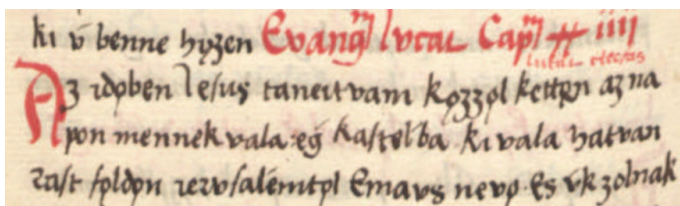 ki v̇ benne hyzen Evangl̃ lvcai Capl̃
Az idọben Iesus taneitvani kọzzọl ketten az na
pon mennek vala: eġ kastelba ki vala hatvan
zast fọldọn iervsalemtọl Emavs nevọ. Es v̇k zolnak